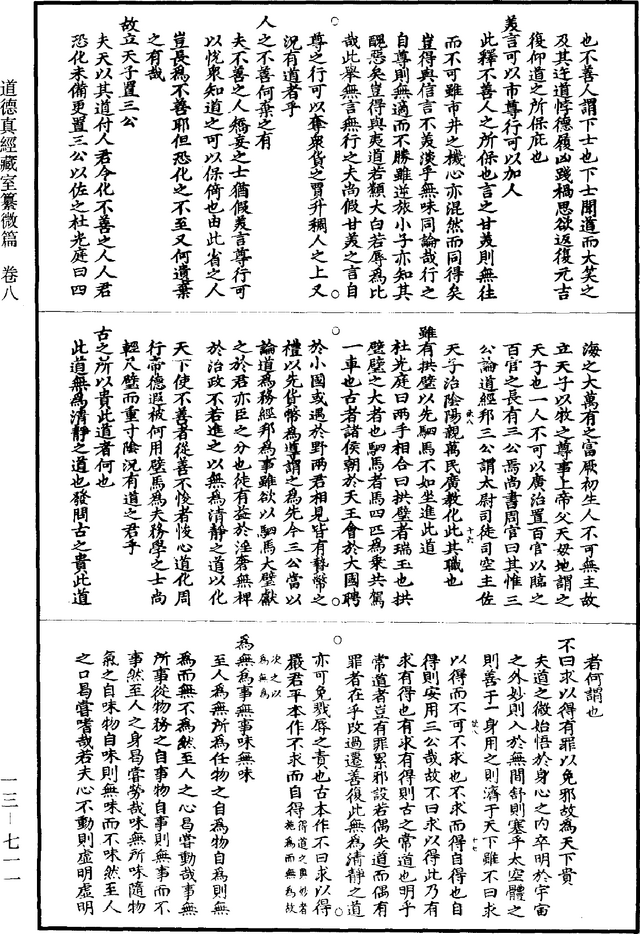 也不善人謂下士也下士聞道而大笑之
及其迕道悖德履凶踐禍思欲返復元吉
復仰道之所保庇也
美言可以市尊行可以加人
此釋不善人之所保也言之甘美則無往
而不可雖市井之機心亦混然而同得矣
豈得與信言不美淡乎無味同論哉行之
自尊則無適而不勝雖逆旅小子亦知其
醜惡矣豈得與夷道若纇大白若辱為比
哉此舉無言無行之夫尚假甘美之言自
尊之行可以奪衆貨之賈升稠人之上又
況有道者乎
人之不善何棄之有
夫不善之人矯妄之士猶假美言尊行可
以悅衆知道之可以保倚也由此省之人
豈長為不善耶但恐化之不至又何遺棄
之有哉
故立天子置三公
夫天以其道付人君令化不善之人人君
恐化未備更置三公以佐之杜光庭曰四
海之大萬有之富厥初生人不可無主故
立天子以牧之尊事上帝父天母地謂之
天子也一人不可以廣治置百官以臨之
百官之長有三公焉尚書周官曰其惟三
公論道經邦三公謂太尉司徒司空主佐
天子治陰陽親萬民廣教化此其職也
雖有拱璧以先駟馬不如坐進此道
杜光庭曰兩手相合曰拱璧者瑞玉也拱
璧璧之大者也駟馬者馬四匹為乘共駕
一車也古者諸侯朝於天王會於大國聘
於小國或遇於野兩君相見皆有贄幣之
禮以先貨幣為導謂之為先今三公當以
論道為務經邦為事雖欲以駟馬大璧獻
之於君亦臣之分也徒有益於淫奢無裨
於治政不若進之以無為清靜之道以化
天下使不善者從善不悛者悛心道化周
行帝德遐被何用璧馬為夫務學之士尚
輕尺璧而重寸陰況有道之君乎
古之所以貴此道者何也
此道無為清靜之道也發問古之貴此道
者何謂也
不曰求以得有罪以免邪故為天下貴
夫道之微始悟於身心之內卒明於宇宙
之外妙則入於無間舒則塞乎太空體之
則善于一身用之則濟于天下雖不曰求
以得而不可不求也不求而得自得也自
得則安用三公哉故不曰求以得此乃有
求有得也有求有得則古之常道也明乎
常道者豈有罪累邪設若偶失道而偶有
罪者在乎改過遷善復此無為清靜之道
亦可免戮辱之責也古本作不曰求以得
嚴君平本作不求而自得
為無為事無事味無味
至人為無所為任物之自為物自為則無
為而無不為然至人之心曷嘗動哉事無
所事從物務之自事物自事則無事而不
事然至人之身曷嘗勞哉味無所味隨物
氣之自味物自味則無味而不味然至人
之口曷嘗嗜哉若夫心不動則虛明虛明
道德真經藏室纂微篇　卷八
一三—七一一